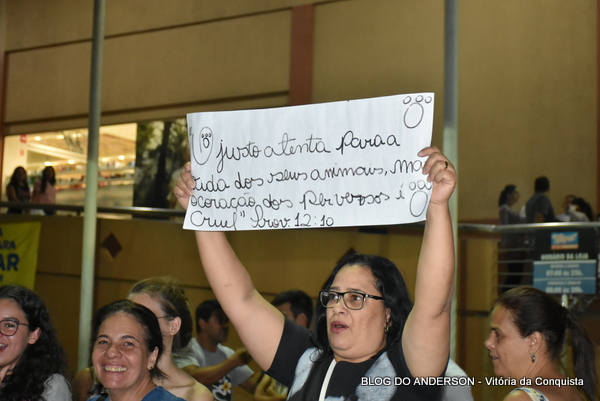 "O justo atenta para a
vida dos seus animais, mas
o coração dos perversos é
Cruel" Prov. 12:10
AR
HORÁRIO DA LOJA
BLOG DO ANDERSON - Vitória da Conquista